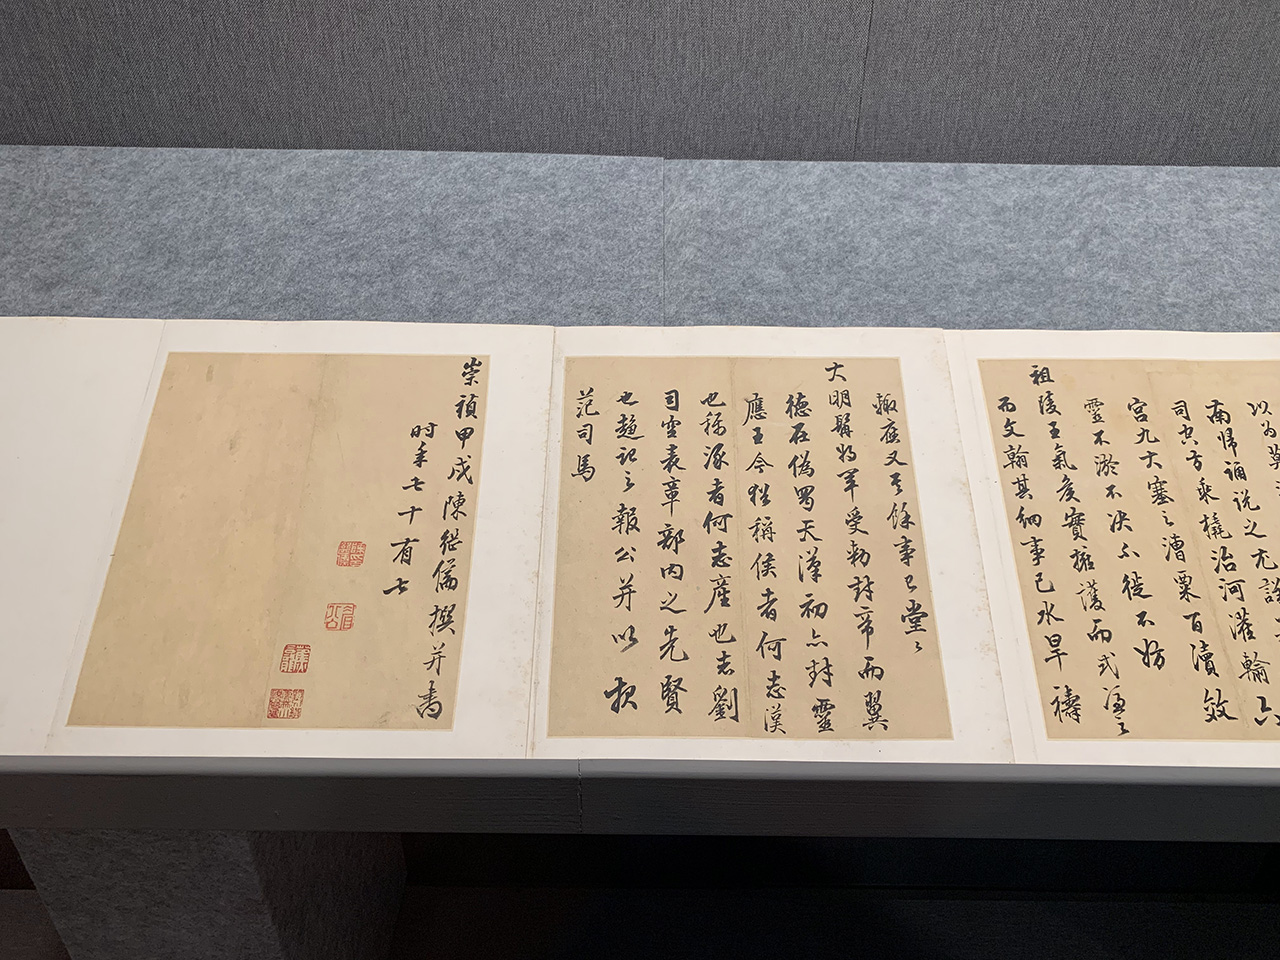 以為草
南歸誦說之尤詮
司空方乘橇治河灌輸六
宮九大塞之漕粟百瀆效
靈不淤不决亦徙不妨
祖陵王氣矣實擁護而式憑之
而文翰其細事已水旱禱
輙應又其餘事已堂〻
大明關將軍受勑封帝而翼
德在偽蜀天漢初亦封靈
應王今猶稱侯者何志漢
也稱涿者何志產也志劉
司空表章部內之先賢
也趣記之報公并以報
范司馬
崇禎甲戌陳繼儒撰并書
時年七十有七